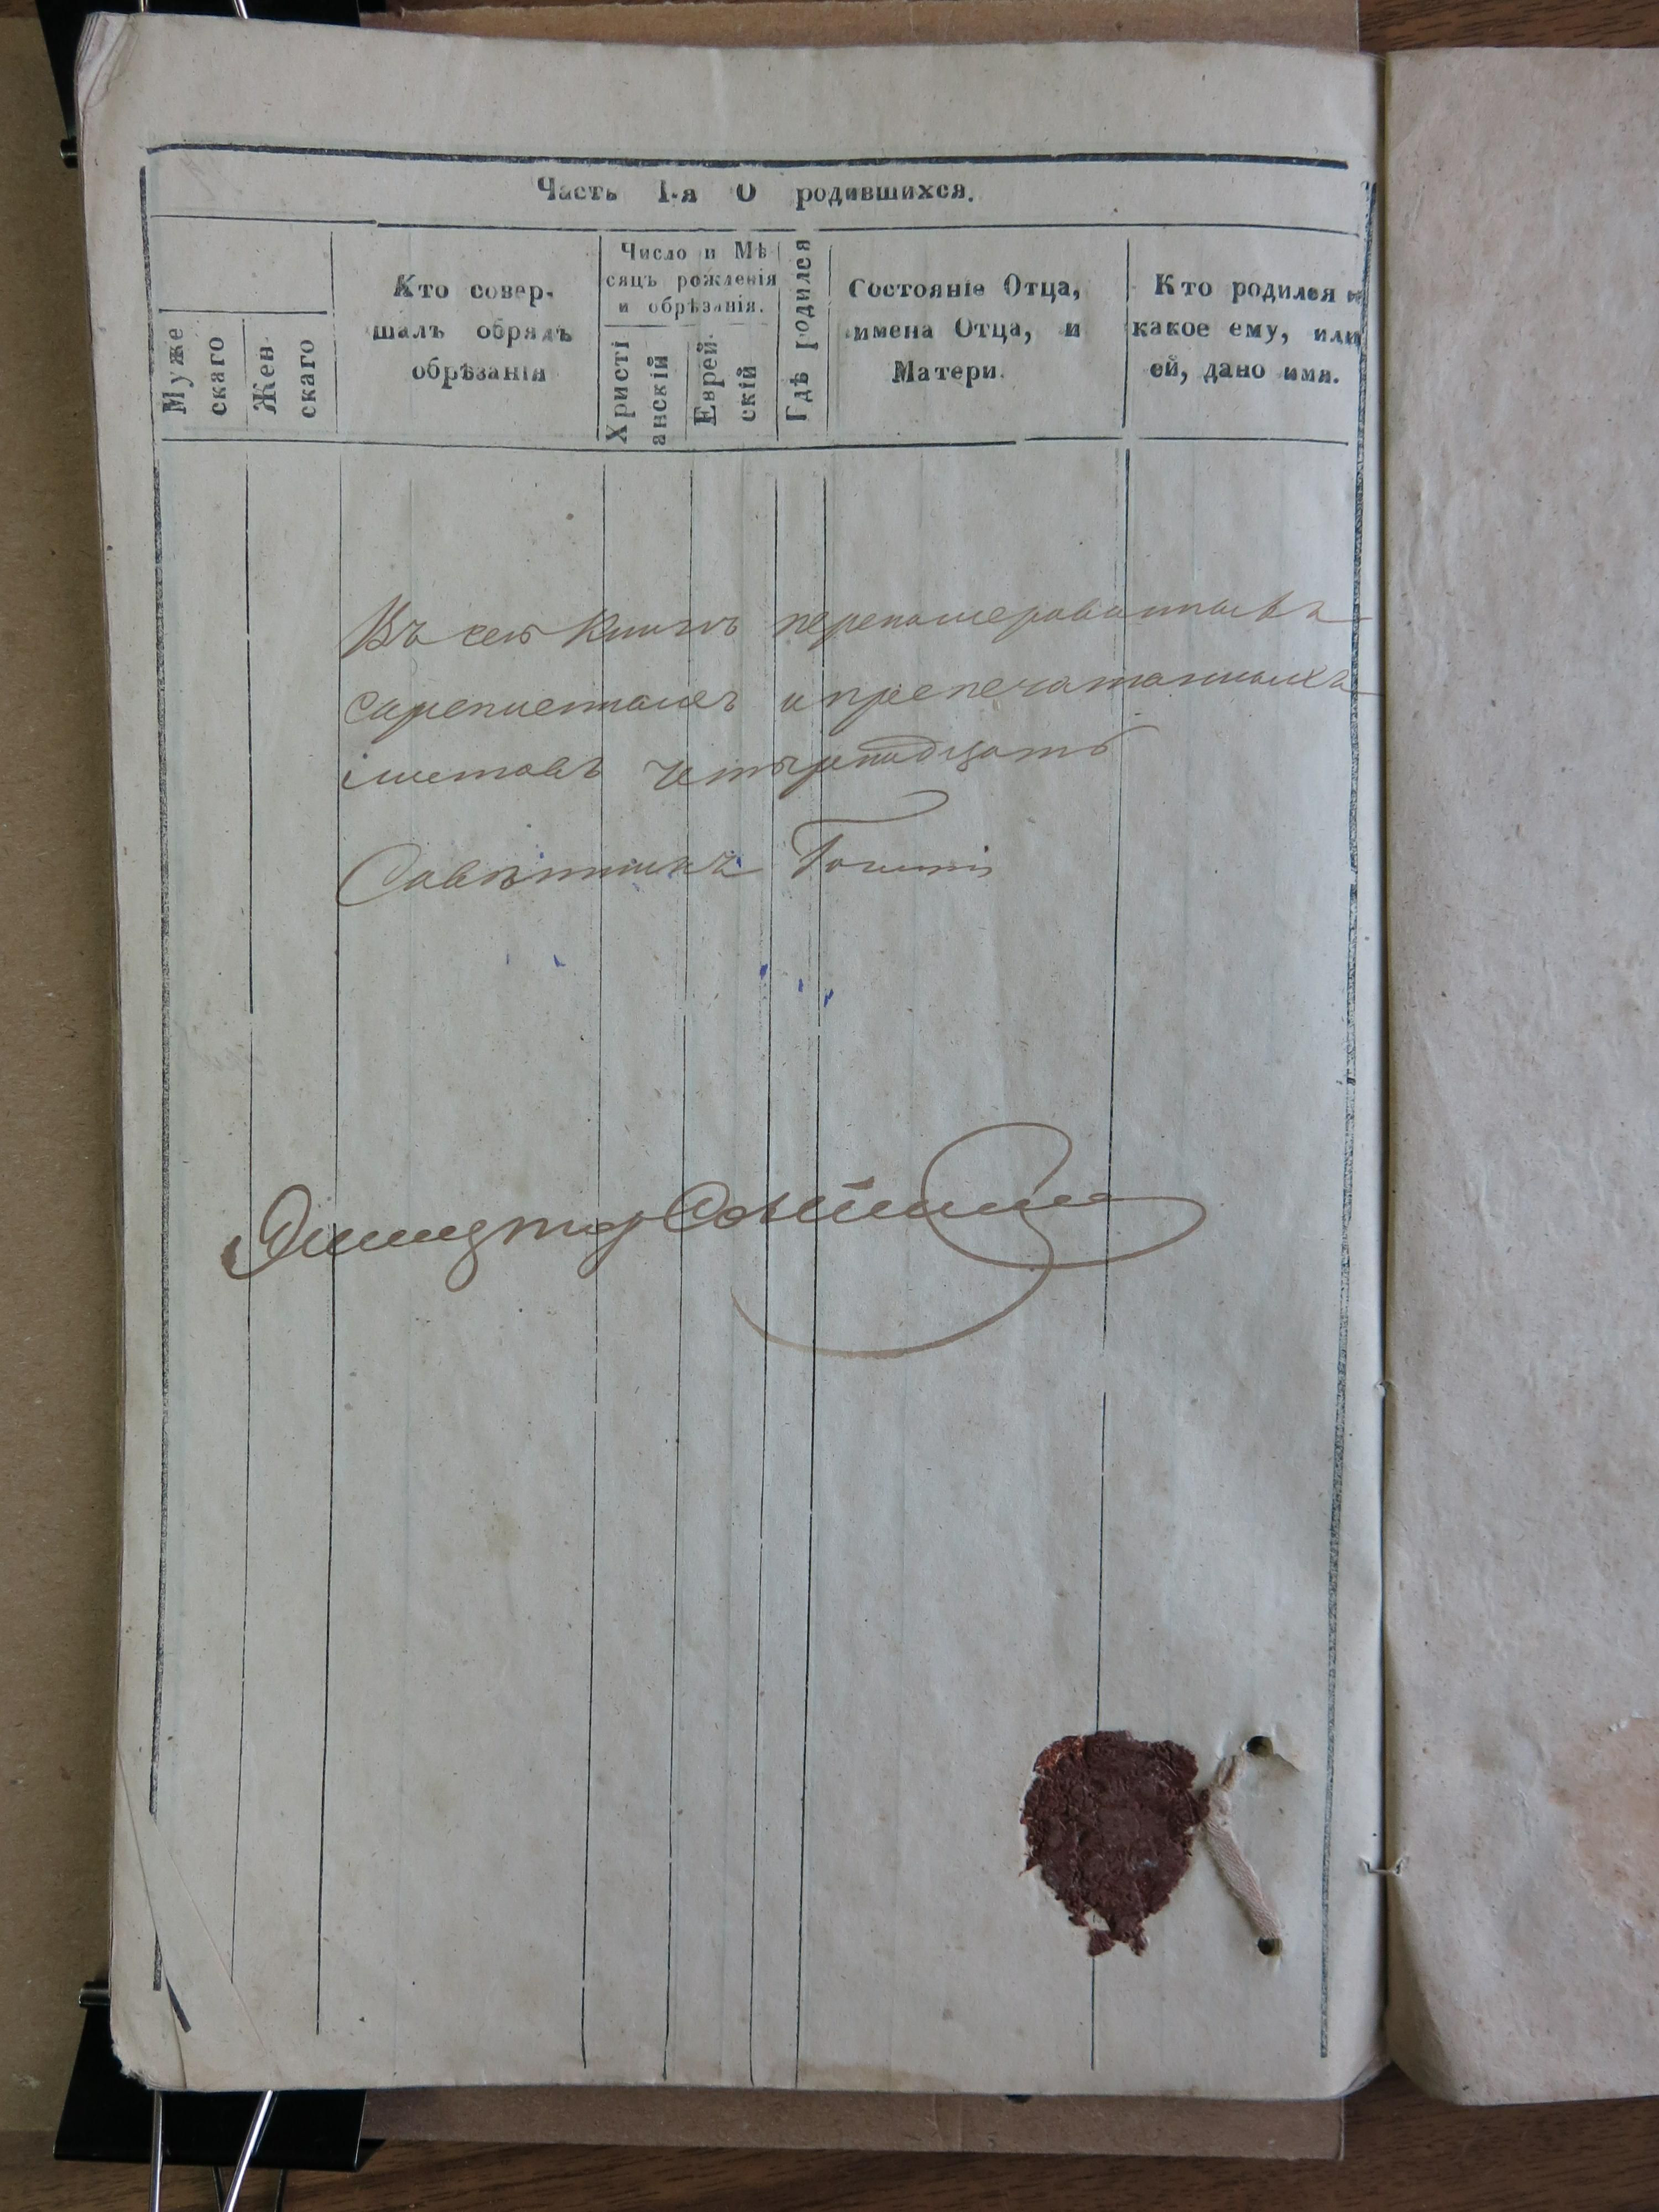 Часть I-я О родившихся.
Муже
скаго
Жен-
скаго
Кто совер-
шалъ обрядъ
обрѣзанія
Число и Мѣ
сяцъ рожденія
и обрѣзанія.
Христі
анскій
Еврей-
скій
Гдѣ родился
Состояніе Отца,
имена Отца, и
Матери.
Кто родился и
какое ему, или
ей, дано имя.
Въ сей книгѣ перенумерованныхъ
скрепленныхъ и препечатанныхъ
листовъ четырнадцать
Совѣтникъ